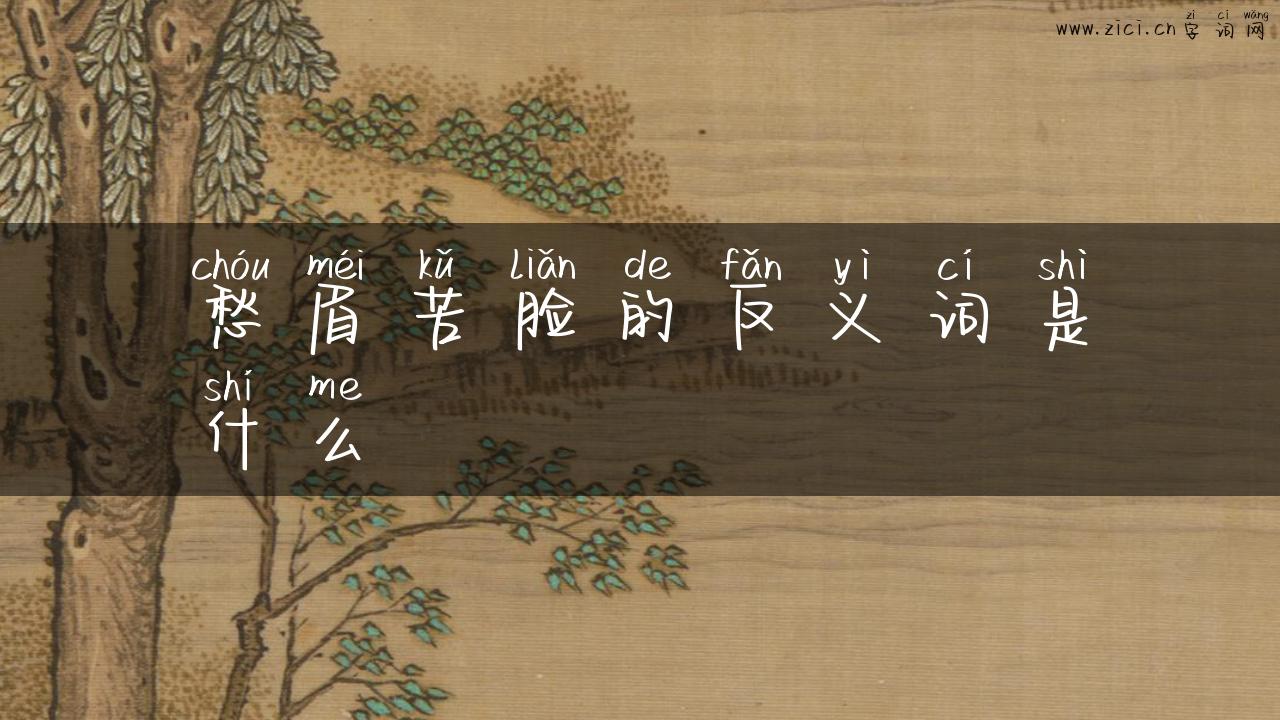 zì cí wǎng
www.zici.cn 字词网
chóu méi kǔ liǎn de fǎn yì cí shì
愁眉苦脸的反义词是
shí me
什么